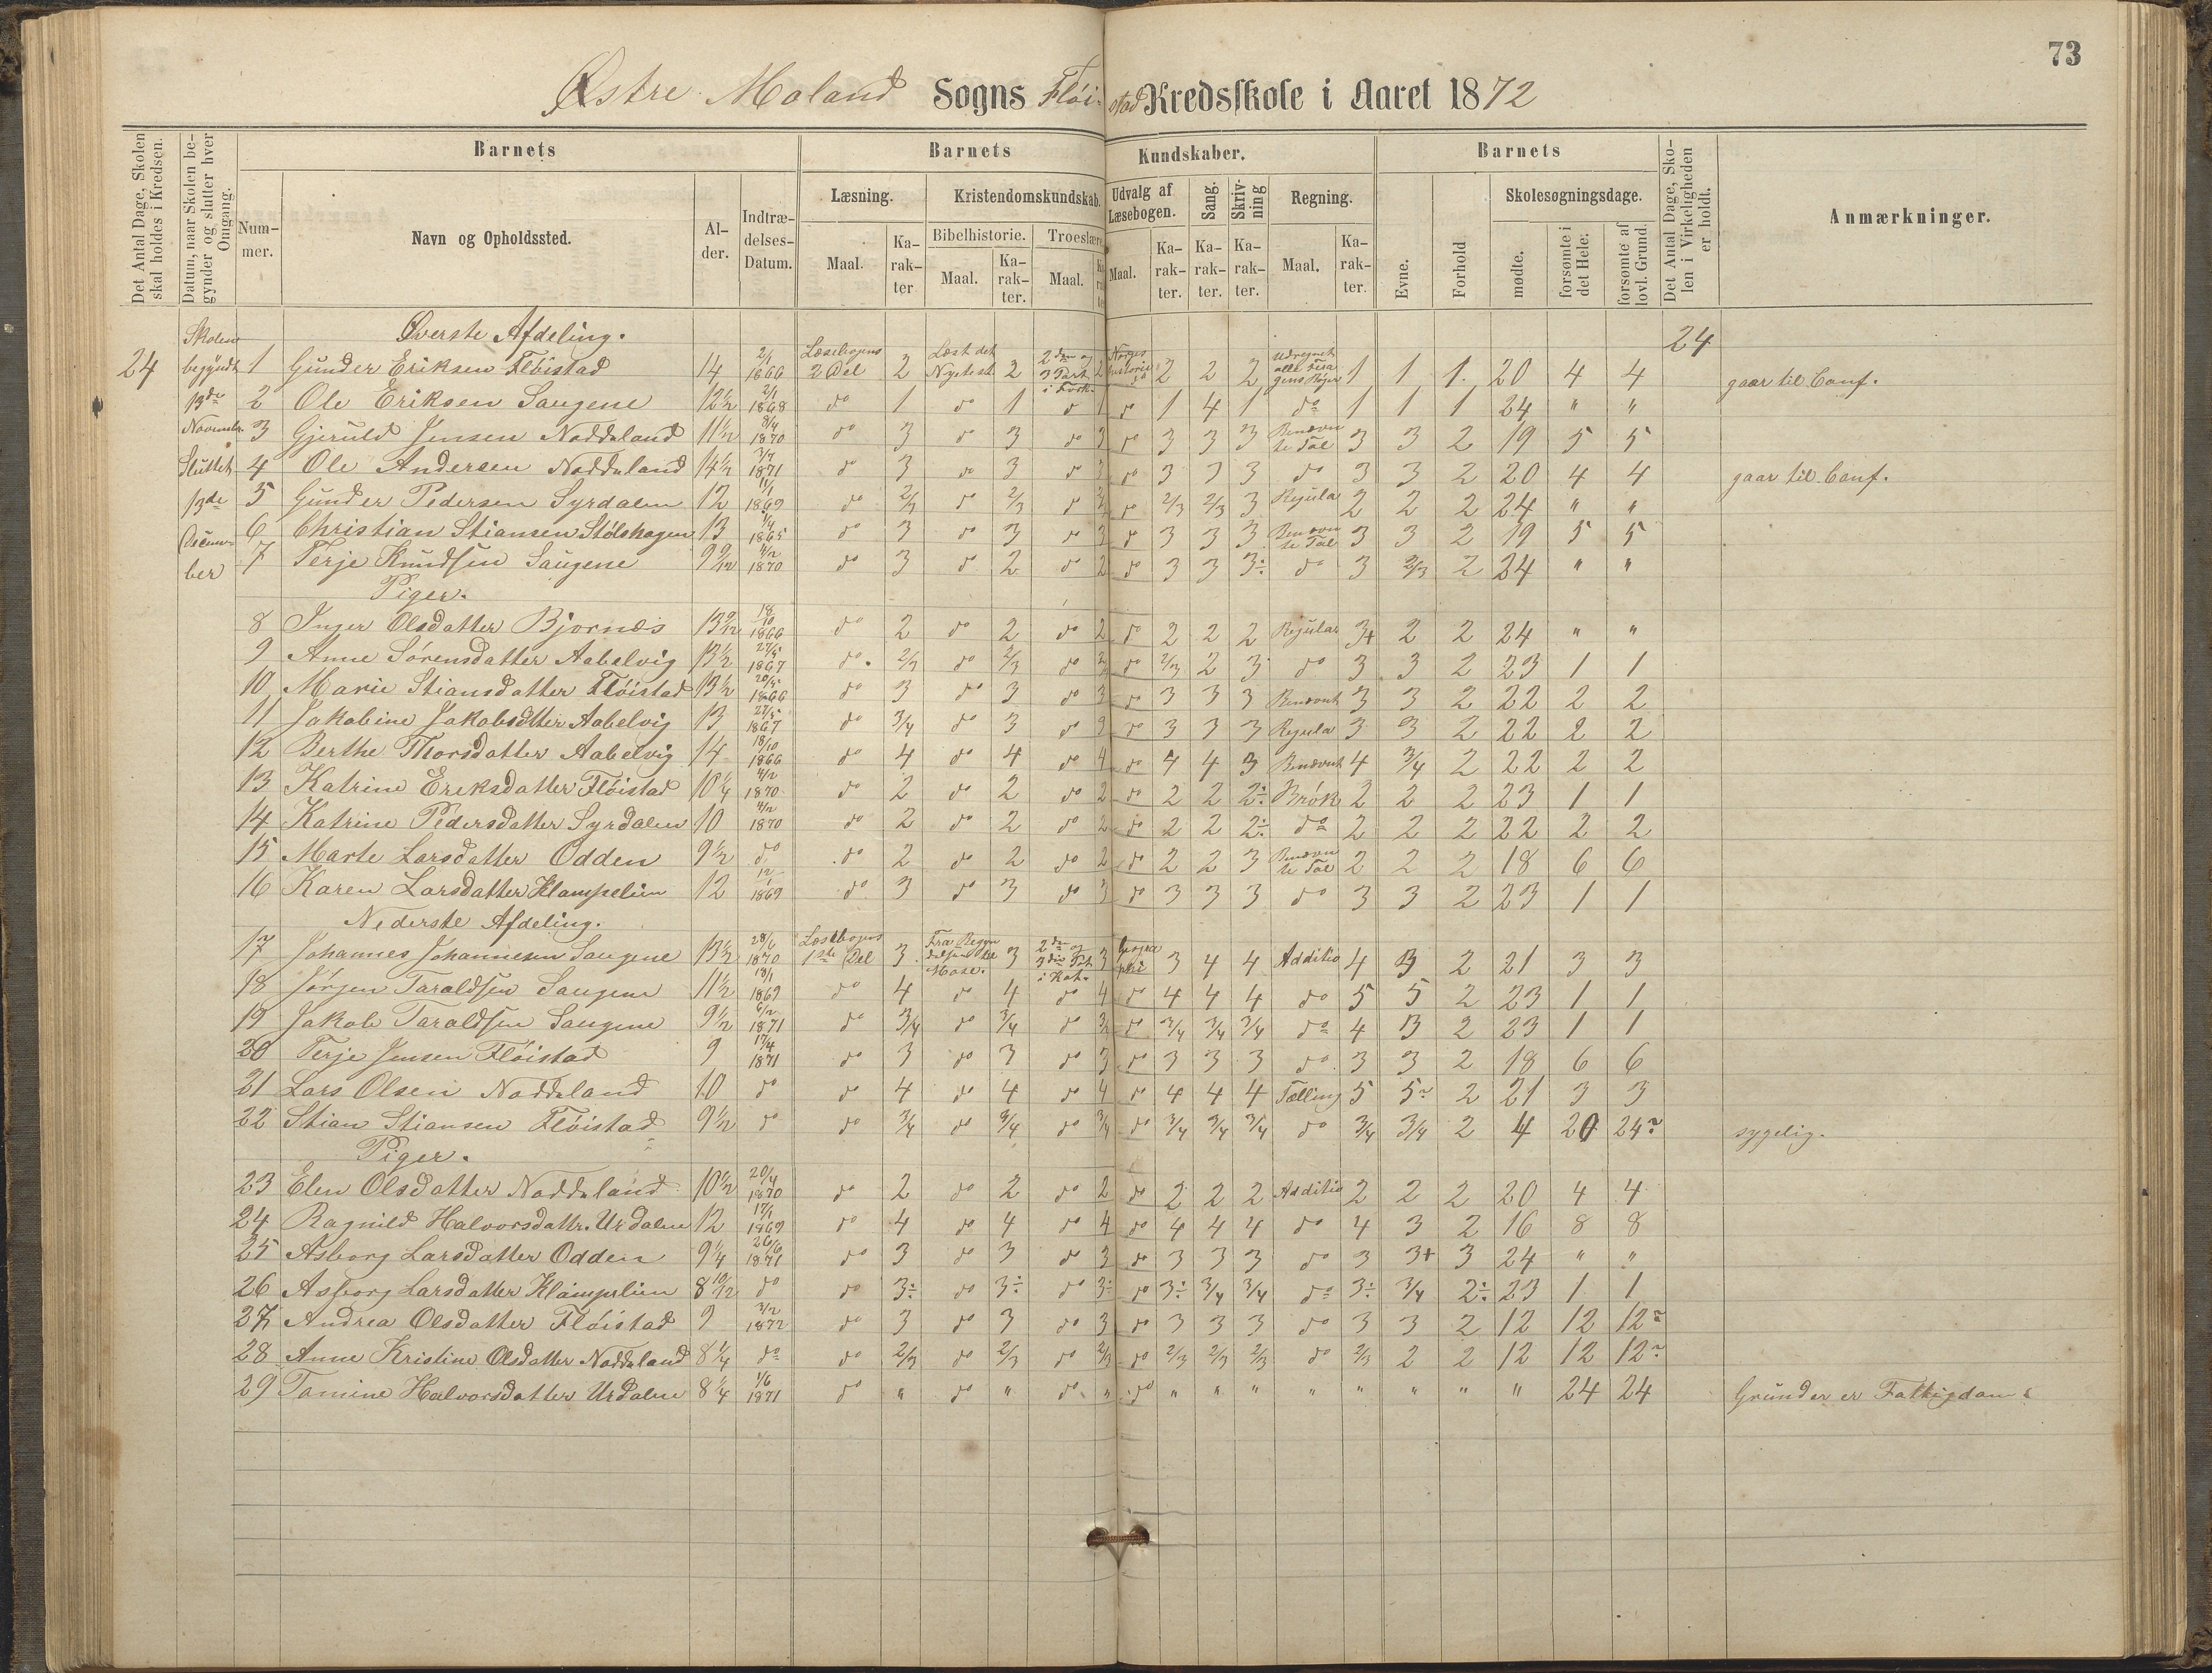 73
Østre Moland Sogns Flöistad Kredsskole i Aaret 1872
Det Antal Dage, Skolen skal holdes i Kredsen.
Datum, naar Skolen begynder og slutter hver Omgang.
Barnets
Nummer.
Navn og Opholdssted.
Alder.
Indtrædelses-Datum.
Barnets Kundskaber.
Læsning.
Maal.
Karakter
Kristendomskundskab.
Bibelhistorie.
Maal.
Karakter.
Troeslære
Maal.
Udvalg af Læsebogen.
Maal.
Karakter.
Sang.
Karakter.
Skrivning
Karakter.
Regning.
Maal.
Karakter.
Barnets
Evne.
Forhold
Skolesøgningsdage.
mødte.
forsømte i det Hele.
forsømte af lovl. Grund.
Det Antal Dage, Skolen i Virkeligheden er holdt.
Anmærkninger.
24
Skolen begyndt 13de November Sluttet 13de December
24
Øverste Afdeling.
1 Gunder Eriksen Flöistad 14 2/1 1866 Læsebogens 2 Del 2 Læst det Nyetest 2 2den og 3 Part i Fork. 2 Norges historie 2 2 2 Udregnet 1 1 1 20 4 4 gaar til Conf.
2 Ole Eriksen Saugene 12 1/2 2/1 1868 do 1 do 1 do 1 do 1 4 1 do 1 1 1 24 " "
3 Gjeruld Jensen Noddeland 11 1/2 8/4 1870 do 3 do 3 do 3 do 3 3 3 Benævnte Tal 3 3 2 19 5 5
4 Ole Andersen Noddeland 14 1/2 1871 do 3 do 3 do 3 do 3 3 3 do 3 3 2 20 4 4 gaar til Conf.
5 Gunder Pedersen Syrdalen 12 11/1 1869 do 2/3 do 2/3 do 2/3 do 2/3 2/3 3 Regula 2 2 2 24 " "
6 Christian Stiansen Stölshagen 13 1865 do 3 do 3 do 3 do 3 3 3 Benævnte Tal 3 3 2 19 5 5
7 Terje Knudsen Saugene 9 9/12 4/2 1870 do 3 do 2 do 2 do 3 3 3÷ do 3 2/3 2 24 " "
Piger.
8 Inger Olsdatter Bjornæs 13 9/12 18/10 1866 do 2 do 2 do 2 do 2 2 2 Regular 3+ 2 2 24 " "
9 Anne Sörensdatter Aabelvig 13 1/2 27/5 1867 do. 2/3 do 2/3 do 2/3 do 2/3 2 3 do 3 3 2 23 1 1
10 Marie Stiansdatter Flöistad 13 1/2 20/5 1866 do 3 do 3 do 3 do 3 3 3 Benævnt 3 3 2 22 2 2
11 Jakobine Jakobsdtter Aabelvig 13 27/5 1867 do 3/4 do 3 do 3 do 3 3 3 Regula 3 3 2 22 2 2
12 Berthe Thorsdatter Aabelvig 14 18/10 1866 do 4 do 4 do 4 do 4 4 3 Benævnt 4 3/4 2 22 2 2
13 Katrine Ereksdatter Flöistad 10 1/4 4/2 1870 do 2 do 2 do 2 do 2 2 2÷ Brök 2 2 2 23 1 1
14 Katrine Pedersdatter Syrdalen 10 4/2 1870 do 2 do 2 do 2 do 2 2 2÷ do 2 2 2 22 2 2
15 Marte Larsdatter Odden 9 1/2 do do 2 do 2 do 2 do 2 2 3 Benævnte Tal 2 2 2 18 6 6
16 Karen Larsdatter Klampelien 12 12/1 1869 do 3 do 3 do 3 do 3 3 3 do 3 3 2 23 1 1
Nederste Afdeling.
17 Johannes Johannesen Saugene 13 1/2 28/6 1870 Læsebogens 1ste Del 3 Fra Begyndelsen til Mose. 3 2den og 3die Part i Kat. 3 Geographie 3 4 4 Additio 4 3 2 21 3 3
18 Jörgen Taraldsen Saugene 11 1/2 18/1 1869 do 4 do 4 do 4 do 4 4 4 do 5 5 2 23 1 1
19 Jakob Taraldsen Saugene 9 1/2 6/2 1871 do 3/4 do 3/4 do 3/4 do 3/4 3/4 3/4 do 4 3 2 23 1 1
20 Terje Jensen Flöistad 9 17/4 1871 do 3 do 3 do 3 do 3 3 3 do 3 3 2 18 6 6
21 Lars Olsen Noddeland 10 do do 4 do 4 do 4 do 4 4 4 Tælling 5 5 2 21 3 3
22 Stian Stiansen Flöistad 9 1/2 do do 3/4 do 3/4 do 3/4 do 3/4 3/4 3/4 do 3/4 3/4 2 4 20 24 sygelig.
Piger.
23 Elen Olsdatter Noddeland 10 1/2 20/4 1870 do 2 do 2 do 2 do 2 2 2 Additio 2 2 2 20 4 4
24 Ragnild Halvorsdattr. Urdalen 12 17/1 1869 do 4 do 4 do 4 do 4 4 4 do 4 3 2 16 8 8
25 Asborg Larsdatter Odden 9 1/4 26/6 1871 do 3 do 3 do 3 do 3 3 3 do 3 3+ 3 24 " "
26 Asborg Larsdatter Klampelien 8 10/12 do do 3÷ do 3÷ do 3÷ do 3÷ 3/4 3/4 do 3÷ 3/4 2÷ 23 1 1
27 Andrea Olsdatter Flöistad 9 3/2 1872 do 3 do 3 do 3 do 3 3 3 do 3 3 2 12 12 12
28 Anne Kristine Olsdatter Noddeland 8 1/4 do do 2/3 do 2/3 do 2/3 do 2/3 2/3 2/3 do 2/3 2 2 12 12 12
29 Tomine Halvorsdatter Urdalen 8 1/4 1/6 1871 do " do " do " do " " " " " " " " 24 24 Grunden er Fattigdom